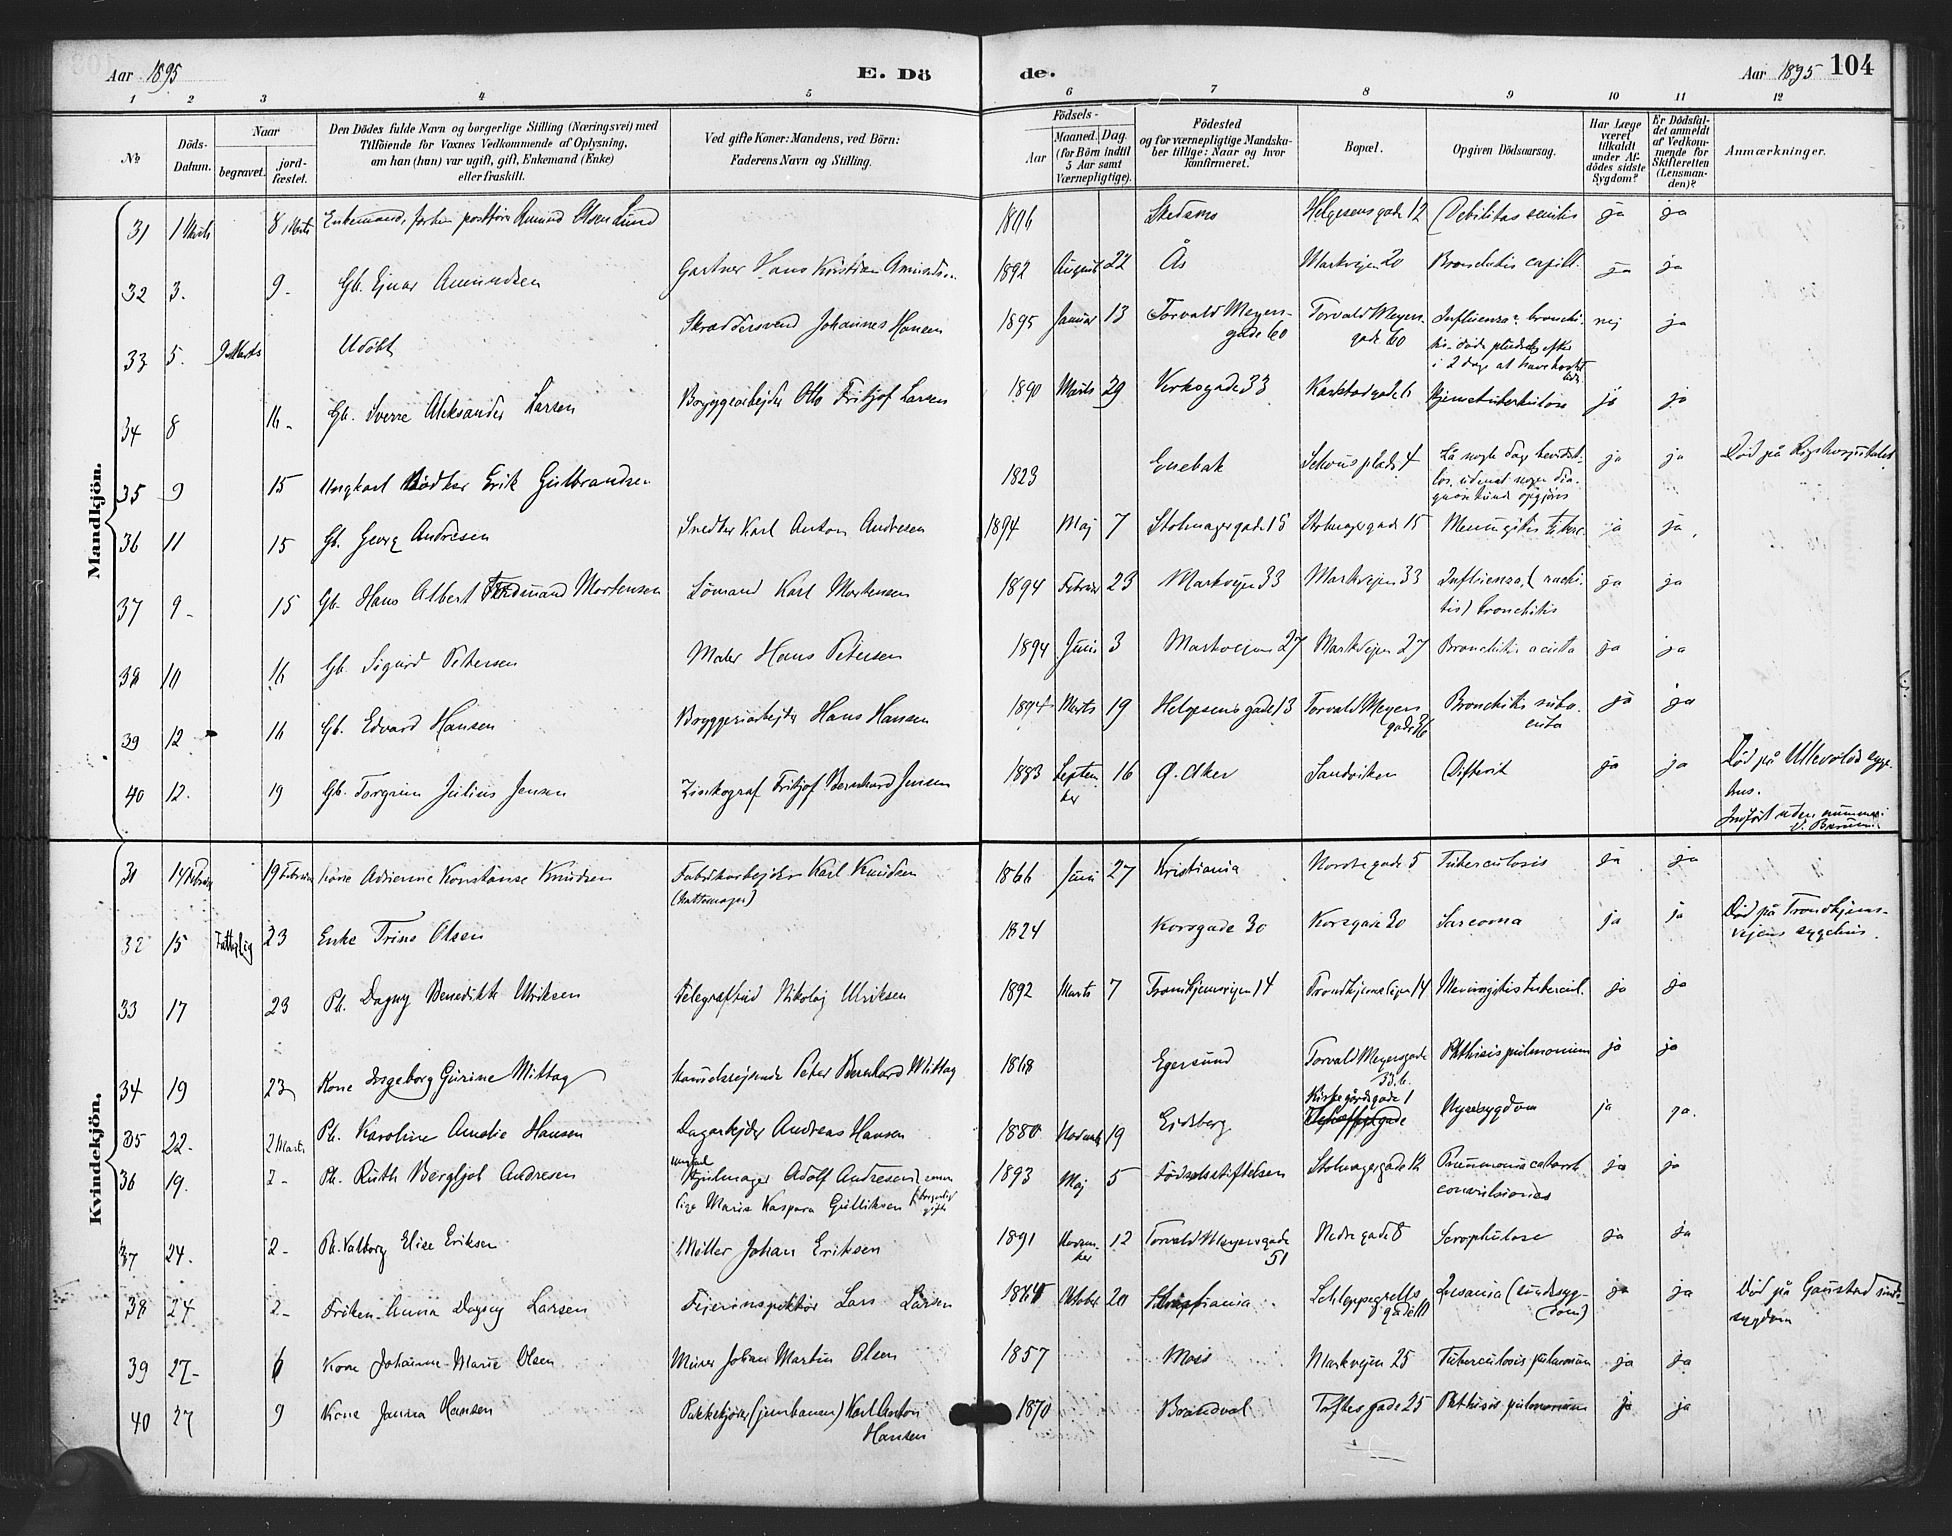 Aar 1895
E. Dö
de.
Aar 1895 104
1 2 3 4 5 6 7 8 9 10 11 12
No
Döds-Datum.
Naar
begravet.
jord-fæstet.
Den Dödes fulde Navn og borgerlige Stilling (Næringsvei) med
Tilföiende for Voxnes Vedkommende af Oplysning,
om han (hun) var ugift, gift, Enkemand (Enke)
eller fraskilt.
Ved gifte Koner: Mandens, ved Börn:
Faderens Navn og Stilling.
Födsels-
Aar
Maaned. Dag.
(for Börn indtil
5 Aar samt
Værnepligtige).
Födested
og for værnepligtige Mandska-
ber tillige: Naar og hvor
konfirmeret.
Bopæl.
Opgiven Dödsaarsag.
Har Læge
været
tilkaldt
under Af-
dödes sidste
Sygdom?
Er Dödsfal-
det anmeldt
af Vedkom-
mende for
Skifteretten
(Lensman-
den)?
Anmærkninger.
Mandkjön.
31 1 Marts 8 Marts Enkemand, Amund Olsen Lund 1816 Skedsmo Helgesens gade 12 Debilitas senilis ja ja
32 3. 9- Gb. Ejnar Amundsen Gartner Hans Kristian Amundsen 1892 August 22 Ås Markvejen 20 Bronchitis capill. ja ja
33 5. 9 Marts Udöbt Skræddersvend Johannes Hansen 1895 Januar 13 Torvald Meyers-
gade 60 Torvald Meyers
gade 60 Influenza: bronchi-
tis- døde pludselig efter
i 2 dage at have hostet nej ja
34 8 16- Gb. Sverre Aleksander Larsen Bryggearbejder Otto Fritjof Larsen 1890 Marts 29 Verksgade 33 Karlstadgade 6 Hjernetuberkulose ja ja
35 9 15 Ungkarl Bödker Erik Gulbrandsen 1823 Enebak Schous plads 4 Lå nogle dage bevidst-
los, uden at nogen dia-
gnose kunde opgjøres ja ja Död på Rigshospitalet
36 11 15 Gb. Georg Andresen Snedker Karl Anton Andresen 1894 Maj 7 Stolmagergade 15 Stolmagergade 15 Meningitis tuberc. ja ja
37 9- 15 Gb. Hans Albert Ferdinand Mortensen Sömand Karl Mortensen 1894 Februar 23 Markvejen 33 Markvejen 33 Influenza, (rachi-
tis) bronchitis ja ja
38 10 16 Gb. Sigurd Petersen Maler Hans Petersen 1894 Juni 3 Markvejen 27 Markvejen 27 Bronchitis acuta ja ja
39 12 16 Gb. Edvard Hansen Bryggeriarbejder Hans Hansen 1894 Marts 19 Helgesens gade 13 Torvald Meyers
gade 36 Bronchitis suba-
cuta ja ja
40 12. 19 Gb. Torgrim Julius Jensen Zinkograf Fritjof Bernhard Jensen 1883 Septem-
ber 16 G. Aker Sandviken Difterit ja ja Död på Ullevold syge-
hus.
Indfört uden nummer i
V. Bærum
Kvindekjön.
31 14 Februar 19 Februar Kone Adrienne Konstanse Knudsen Fabrikarbejder Karl Knudsen
(hattemager) 1866 Juni 27 Kristiania Nordre gade 5 Tuberculosis ja ja
32 15 Fattiglig 23 Enke Trine Olsen 1824 Korsgade 30 Korsgade 30 Sarcoma ja ja Död på Trondhjems-
vejens sygehus.
33 17 23 Pb. Dagny Benedikte Ulriksen Telegrafbud Nikolaj Ulriksen 1892 Marts 7 Trondhjemsvejen 14 Trondhjemsvejen 14 Meningitis tubercul. ja ja
34 19 23 Kone Ingeborg Gurine Mittag Handelsrejsende Peter Bernhard Mittag 1868 Egersund Torvald Meyersgade
33 b. Phthisis pulmonum ja ja
35 22. 2 Marts Pb. Karoline Amalie Hansen Dagarbejder Andreas Hansen 1880 Novemb. 19 Eidsberg Kirkegårdsgade 1 Nyresygdom ja ja.
36 19. 2- Pb. Ruth Bergljot Andresen Ungkarl
Hjulmager Adolf Andresen
Maria Kaspara Gulliksen 1893 Maj 5 Födselsstiftelsen Stolmagergade 12 Pneumonia catarrh.
convulsiones ja ja
37 24. 2- Pb. Valborg Elise Eriksen Möller Johan Eriksen 1891 Novem-
ber 12 Torvald Meyersgade
51 Nedre gade 8 Scrophulose ja ja
38 24 2- Fröken Anna Dagny Larsen Fejerinspektör Lars Larsen Oktober 20 Kristiania Schleppegrells
gade 10 Vesania (sindssyg-
dom) ja ja Död på Gaustad
39 27- 6 Kone Johanne Marie Olsen Murer Johan Martin Olsen 1857 Moss Markvejen 25 Tuberculosis pulmonum ja ja
40 27 9 Kone Janna Hansen Pukkekjörer (jernbanen) Karl Anton
Hansen 1870 Brandval Toftes gade 25 Phthisis pulmonum ja ja